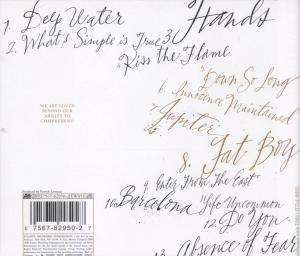 1. Deep Water
2. What's Simple is True
3. Hands
Kiss the Flame
Down So Long
6. Innocence Maintained
7. Jupiter
8. Fat Boy
9. Enter From The East
10. Barcelona
Life Uncommon
12 Do You
13 Absence of Fear
WE ARE LOVED
BEYOND OUR
ABILITY TO
COMPREHEND
7567-82950-2